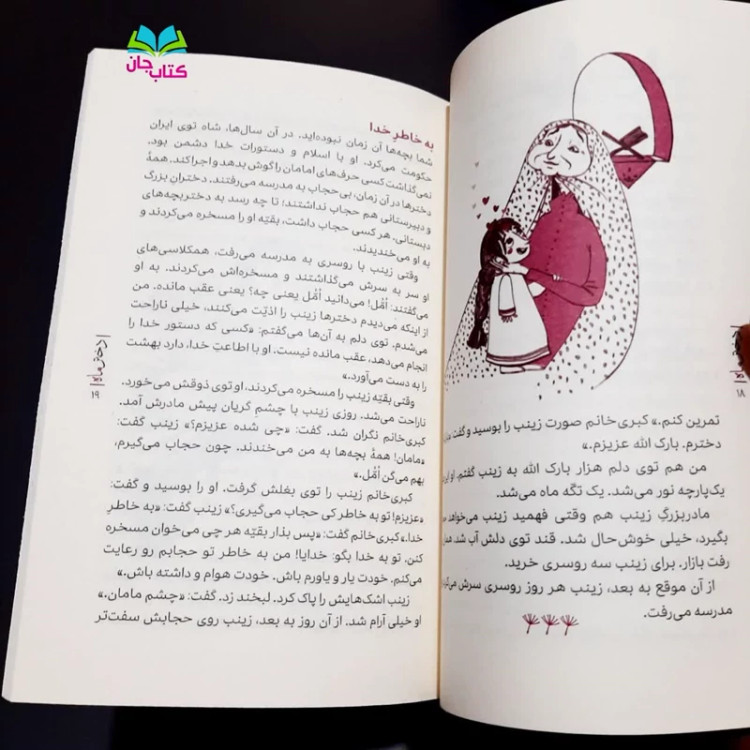 کتاب جان
تمرین کنم.» کبری‌خانم صورت زینب را بوسید و گفت
دخترم. بارک الله عزیزم.»
من هم توی دلم هزار بارک الله به زینب گفتم. او
یک‌پارچه نور می‌شد. یک تگه ماه می‌شد.
مادربزرگِ زینب هم وقتی فهمید زینب می‌خواهد
بگیرد، خیلی خوش‌حال شد. قند توی دلش آب شد.
رفت بازار. برای زینب سه روسری خرید.
از آن موقع به بعد، زینب هر روز روسری سرش
مدرسه می‌رفت.
۱۸
به خاطرِ خدا
شما بچه‌ها آن زمان نبوده‌اید. در آن سال‌ها، شاه توی ایران
حکومت می‌کرد. او با اسلام و دستورات خدا دشمن بود.
نمی‌گذاشت کسی حرف‌های امامان را گوش بدهد و اجرا کند. همهٔ
دخترها در آن زمان، بی حجاب به مدرسه می‌رفتند. دخترانِ بزرگ
و دبیرستانی هم حجاب نداشتند؛ تا چه رسد به دختربچه‌های
دبستانی. هر کسی حجاب داشت، بقیّه او را مسخره می‌کردند و
به او می‌خندیدند.
وقتی زینب با روسری به مدرسه می‌رفت، همکلاسی‌های
او سر به سرش می‌گذاشتند و مسخره‌اش می‌کردند. به او
می‌گفتند: اُمُّل! می‌دانید اُمُّل یعنی چه؟ یعنی عقب مانده. من
از اینکه می‌دیدم دخترها زینب را اذیّت می‌کنند، خیلی ناراحت
می‌شدم. توی دلم به آن‌ها می‌گفتم: «کسی که دستور خدا را
انجام می‌دهد، عقب مانده نیست. او با اطاعتِ خدا، دارد بهشت
را به دست می‌آورد.»
وقتی بقیّه زینب را مسخره می‌کردند، او توی ذوقش می‌خورد.
ناراحت می‌شد. روزی زینب با چشمِ گریان پیش مادرش آمد.
کبری‌خانم نگران شد. گفت: «چی شده عزیزم؟» زینب گفت:
«مامان! همهٔ بچه‌ها به من می‌خندند. چون حجاب می‌گیرم،
بهم می‌گن اُمُّل.»
کبری‌خانم زینب را توی بغلش گرفت. او را بوسید و گفت:
«عزیزم! تو به خاطر کی حجاب می‌گیری؟» زینب گفت: «به خاطرِ
خدا.» کبری‌خانم گفت: «پس بذار بقیّه هر چی می‌خوان مسخره
کنن. تو به خدا بگو: خدایا! من به خاطر تو حجابم رو رعایت
می‌کنم. خودت یار و یاورم باش. خودت هوام و داشته باش.»
زینب اشک‌هایش را پاک کرد. لبخند زد. گفت: «چشم مامان.»
او خیلی آرام شد. از آن روز به بعد، زینب روی حجابش سفت‌تر
دختر ماه
۱۹